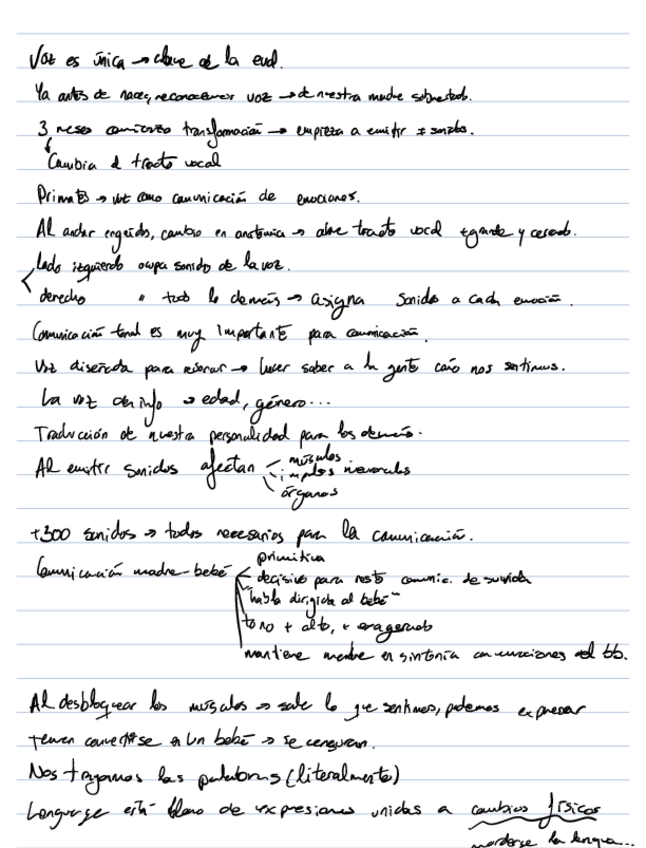 Voz es única → clave de la evol.
Ya antes de nacer, reconocemos voz → de nuestra madre sobretodo.
3 meses comienza transformación → empieza a emitir ≠ sonidos.
Cambia el tracto vocal
Primates → voz como comunicación de emociones.
Al andar erguido, cambio en anatomía → abre tracto vocal +grande y cerebro.
lado izquierdo ocupa sonido de la voz.
derecho " todo lo demás → asigna sonido a cada emoción.
Comunicación tonal es muy importante para comunicación.
Voz diseñada para → hacer saber a la gente cómo nos sentimos.
La voz da info → edad, género...
Traducción de nuestra personalidad para los demás.
Al emitir sonidos afectan
músculos
impulsos nerviosos
órganos
+300 sonidos → todos necesarios para la comunicación.
Comunicación madre-bebé
primitiva
decisivo para resto comunic. de su vida
"habla dirigida al bebé"
tono + alto, + exagerado
mantiene madre en sintonía con emociones del bb.
Al desbloquear los músculos → sale lo que sentimos, podemos expresar
temen convertirse en un bebé → se censuran.
Nos tragamos las palabras (literalmente)
Lenguaje está lleno de expresiones unidas a cambios físicos
morderse la lengua...